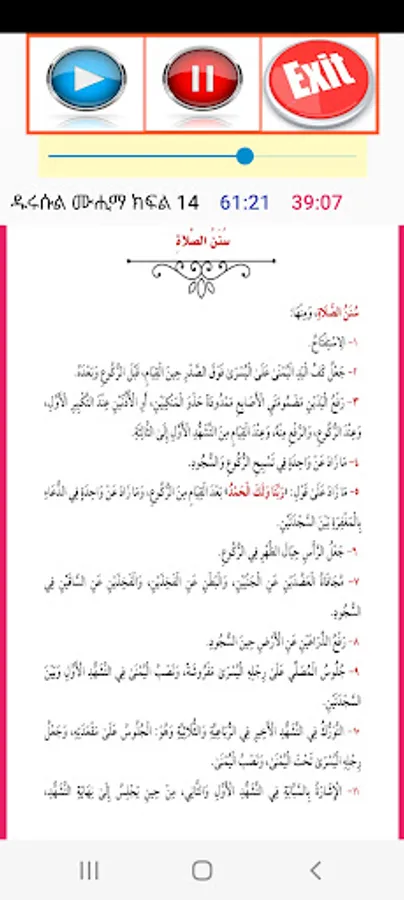 Exit
ዱሩሱል ሙሒማ ክፍል 14 61:21 39:07
سُنَنُ الصَّلَاةِ
سُنَنُ الصَّلَاةِ، وَمِنْهَا:
١- الِاسْتِفْتَاحُ.
٢- جَعْلُ كَفِّ الْيَدِ الْيُمْنَى عَلَى الْيُسْرَى فَوْقَ الصَّدْرِ حِينَ الْقِيَامِ، قَبْلَ الرُّكُوعِ وَبَعْدَهُ.
٣- رَفْعُ الْيَدَيْنِ مَضْمُومَتَيِ الْأَصَابِعِ مَمْدُودَةً حَذْوَ الْمَنْكِبَيْنِ، أَوِ الْأُذُنَيْنِ عِنْدَ التَّكْبِيرِ الْأَوَّلِ،
وَعِنْدَ الرُّكُوعِ، وَالرَّفْعِ مِنْهُ، وَعِنْدَ الْقِيَامِ مِنَ التَّشَهُّدِ الْأَوَّلِ إِلَى الثَّالِثَةِ.
٤- مَا زَادَ عَنْ وَاحِدَةٍ فِي تَسْبِيحِ الرُّكُوعِ وَالسُّجُودِ.
٥- مَا زَادَ عَلَى قَوْلِ: «رَبَّنَا وَلَكَ الْحَمْدُ» بَعْدَ الْقِيَامِ مِنَ الرُّكُوعِ، وَمَا زَادَ عَنْ وَاحِدَةٍ فِي الدُّعَاءِ
بِالْمَغْفِرَةِ بَيْنَ السَّجْدَتَيْنِ.
٦- جَعْلُ الرَّأْسِ حِيَالَ الظَّهْرِ فِي الرُّكُوعِ.
٧- مُجَافَاةُ الْعَضُدَيْنِ عَنِ الْجَنْبَيْنِ، وَالْبَطْنِ عَنِ الْفَخِذَيْنِ، وَالْفَخِذَيْنِ عَنِ السَّاقَيْنِ فِي
السُّجُودِ.
٨- رَفْعُ الذِّرَاعَيْنِ عَنِ الْأَرْضِ حِينَ السُّجُودِ.
٩- جُلُوسُ الْمُصَلِّي عَلَى رِجْلِهِ الْيُسْرَى مَفْرُوشَةً، وَنَصْبُ الْيُمْنَى فِي التَّشَهُّدِ الْأَوَّلِ وَبَيْنَ
السَّجْدَتَيْنِ.
١٠- التَّوَرُّكُ فِي التَّشَهُّدِ الْأَخِيرِ فِي الرُّبَاعِيَّةِ وَالثُّلَاثِيَّةِ وَهُوَ: الْجُلُوسُ عَلَى مَقْعَدَتِهِ، وَجَعْلُ
رِجْلِهِ الْيُسْرَى تَحْتَ الْيُمْنَى، وَنَصْبُ الْيُمْنَى.
١١- الْإِشَارَةُ بِالسَّبَّابَةِ فِي التَّشَهُّدِ الْأَوَّلِ وَالثَّانِي، مِنْ حِينِ يَجْلِسُ إِلَى نِهَايَةِ التَّشَهُّدِ،